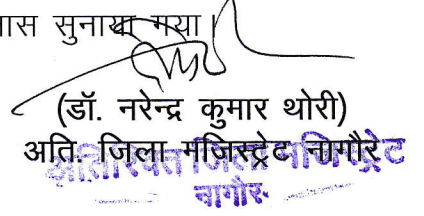 ास सुनाया गया।
(डॉ. नरेन्द्र कुमार थोरी)
अति. जिला मजिस्ट्रेट नागौर
अतिरिक्त जिला मजिस्ट्रेट
नागौर